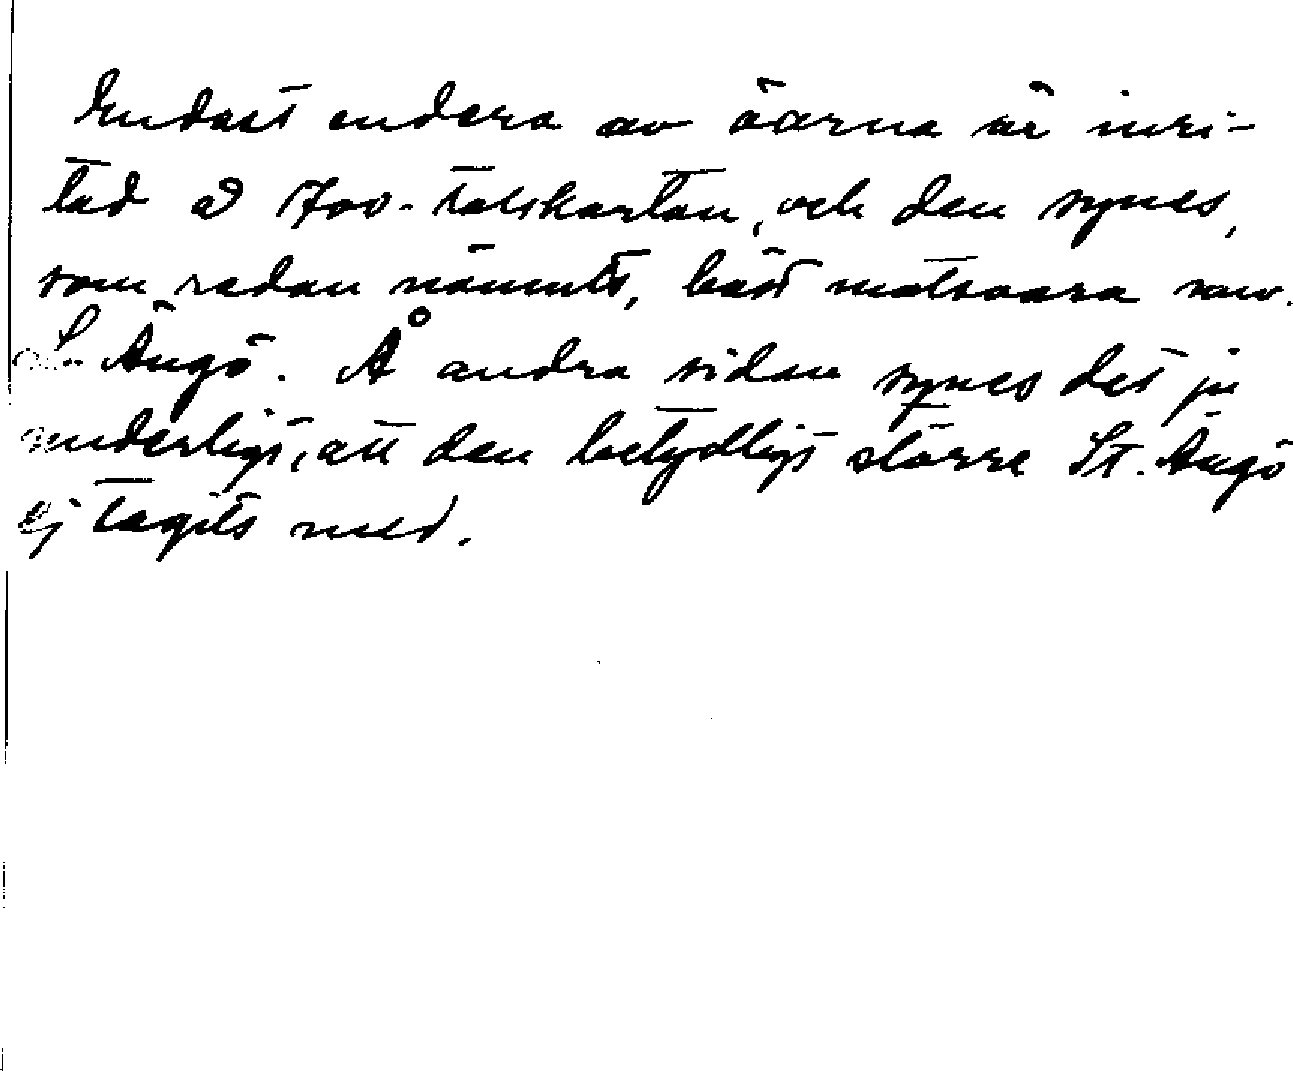 Endast endera av öarna är inri-
tad å 1700-talskartan, och den synes,
som redan nämnts, bäst motsvara nuv.
L. Ängö. Å andra sidan synes det ju
underligt, att den betydligt större St. Ängö
ej tagits med.